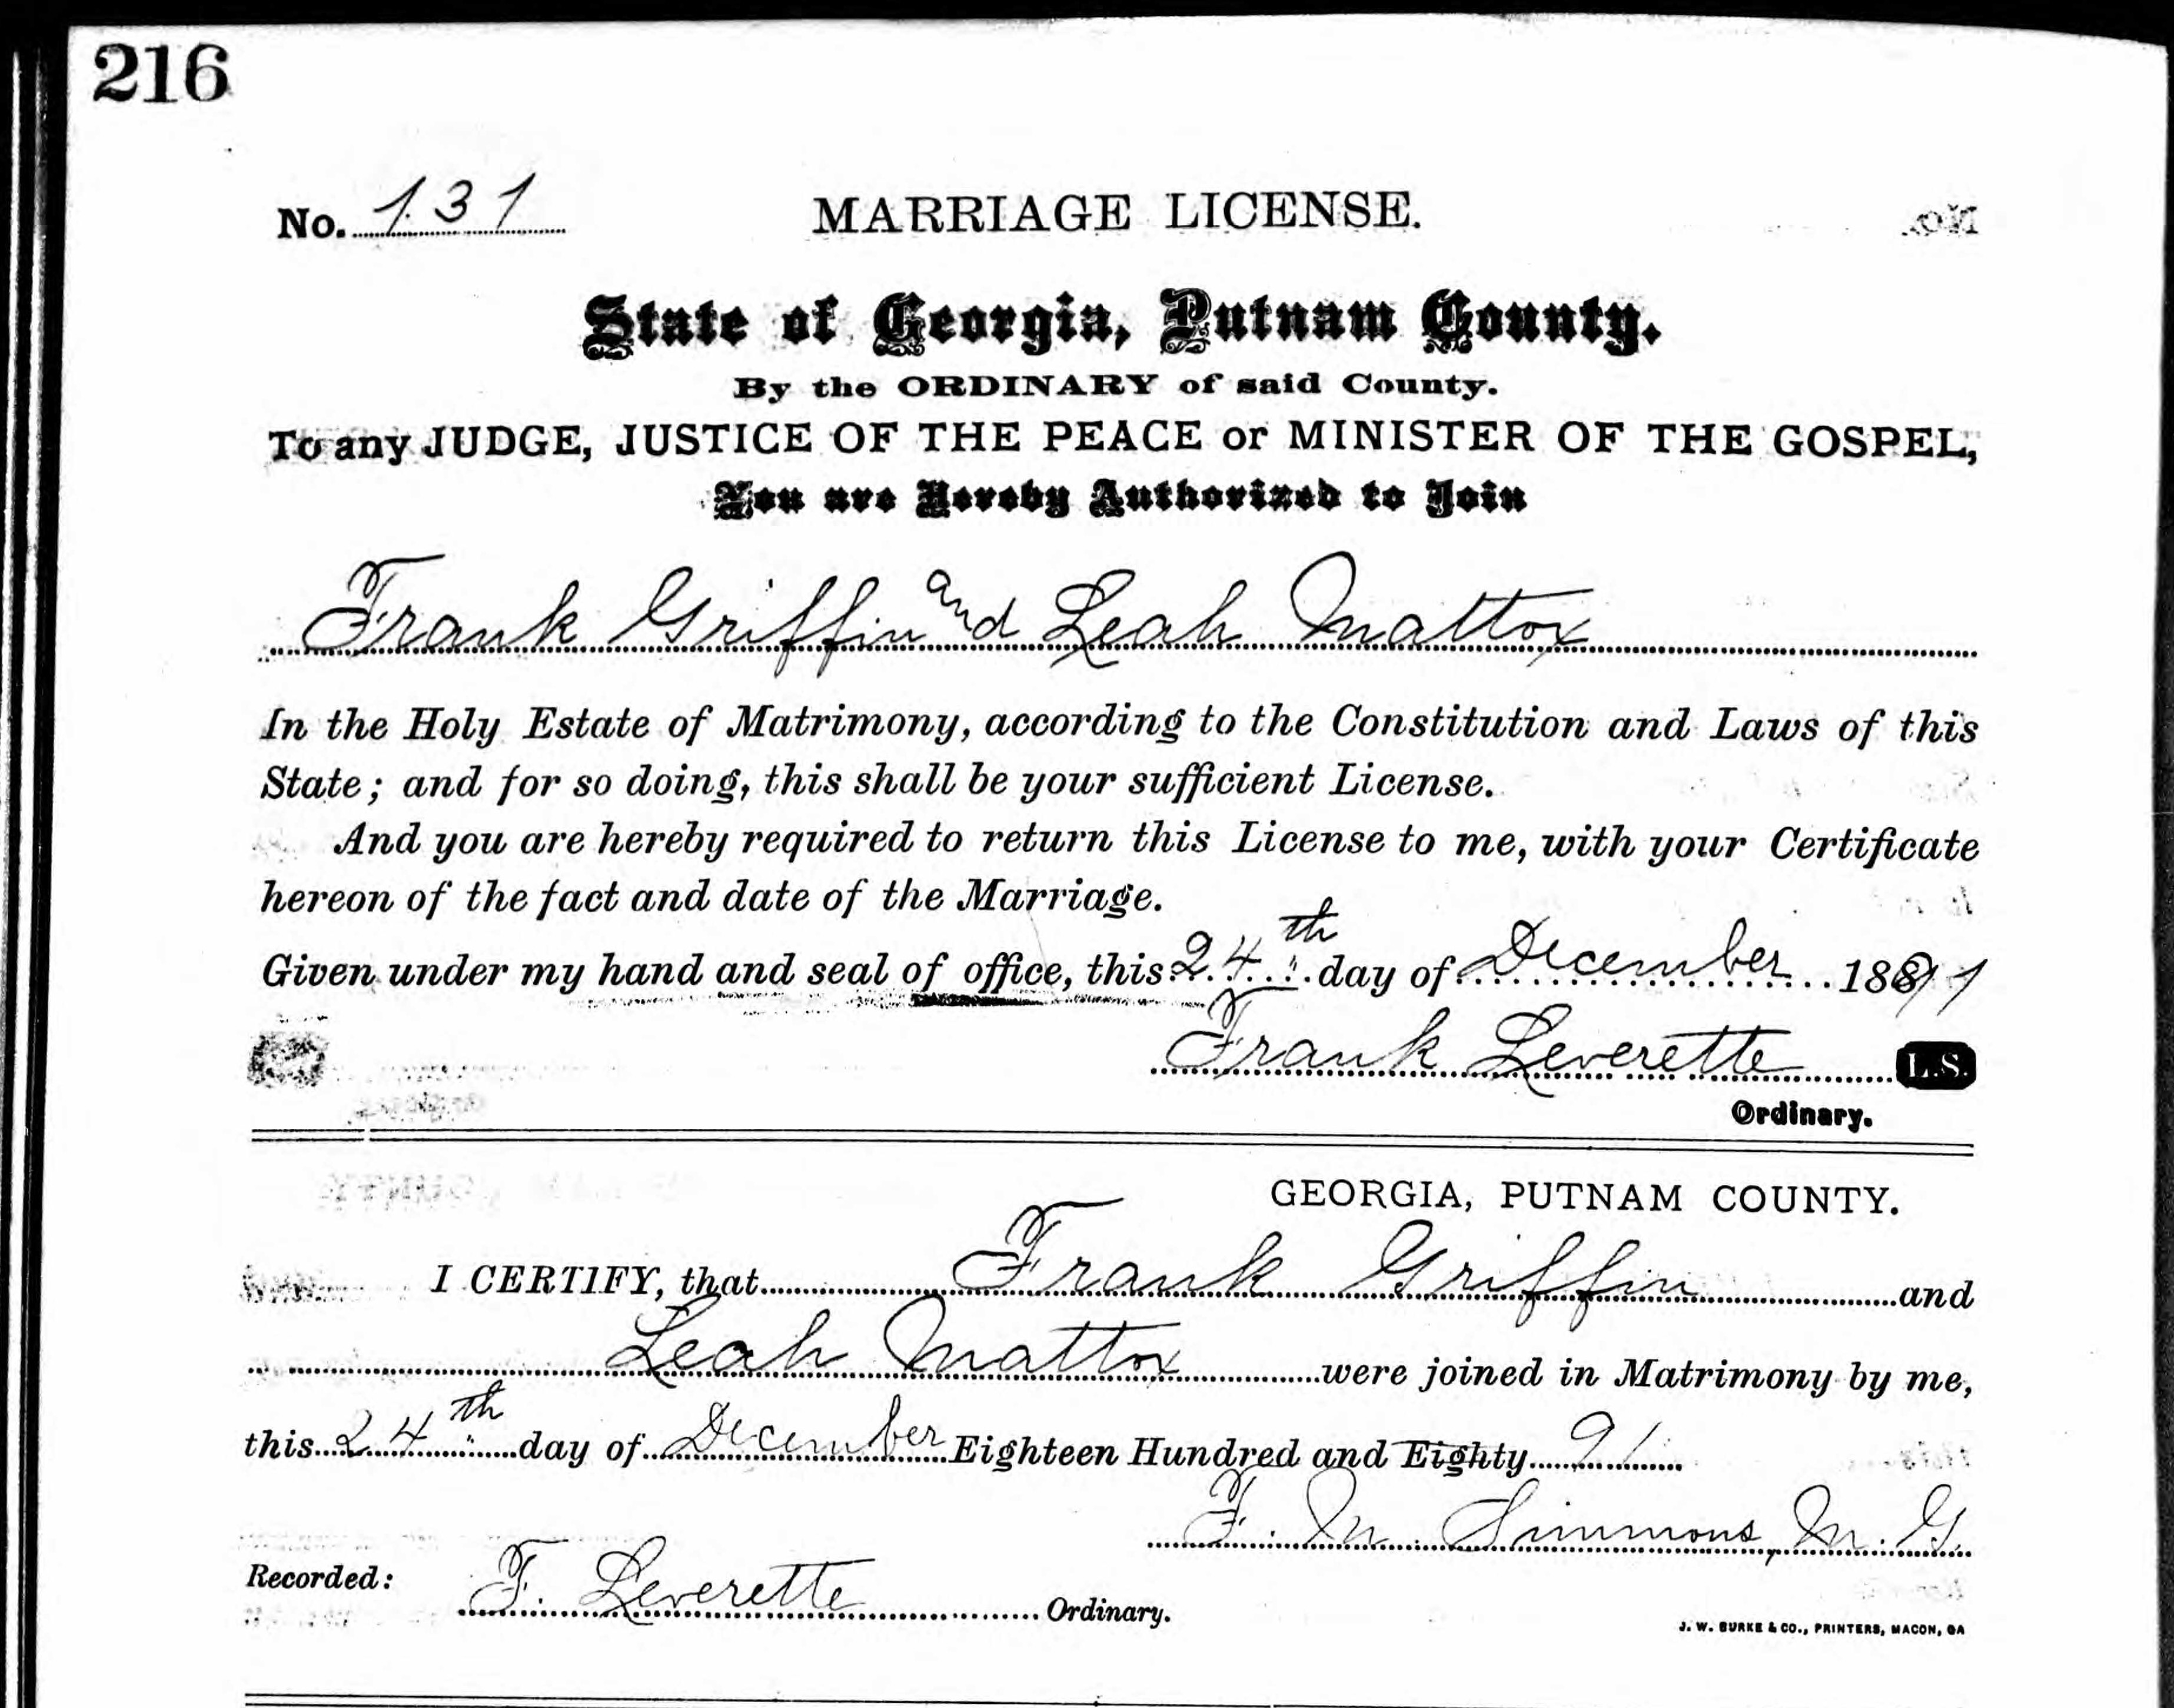 216
No. 131 MARRIAGE LICENSE.
State of Georgia, Putnam County.
By the ORDINARY of said County.
To any JUDGE, JUSTICE OF THE PEACE or MINISTER OF THE GOSPEL,
You are Hereby Authorized to Join
Frank Griffin and Leah Mattox
In the Holy Estate of Matrimony, according to the Constitution and Laws of this
State; and for so doing, this shall be your sufficient License.
And you are hereby required to return this License to me, with your Certificate
hereon of the fact and date of the Marriage.
Given under my hand and seal of office, this 24th day of December 1891
Frank Leverette L.S.
Ordinary.
GEORGIA, PUTNAM COUNTY.
I CERTIFY, that Frank Griffin and
Leah Mattox were joined in Matrimony by me,
this 24th day of December Eighteen Hundred and Eighty 91
F. M. Simmons, M. G.
Recorded: F. Leverette Ordinary.
J. W. BURKE & CO., PRINTERS, MACON, GA